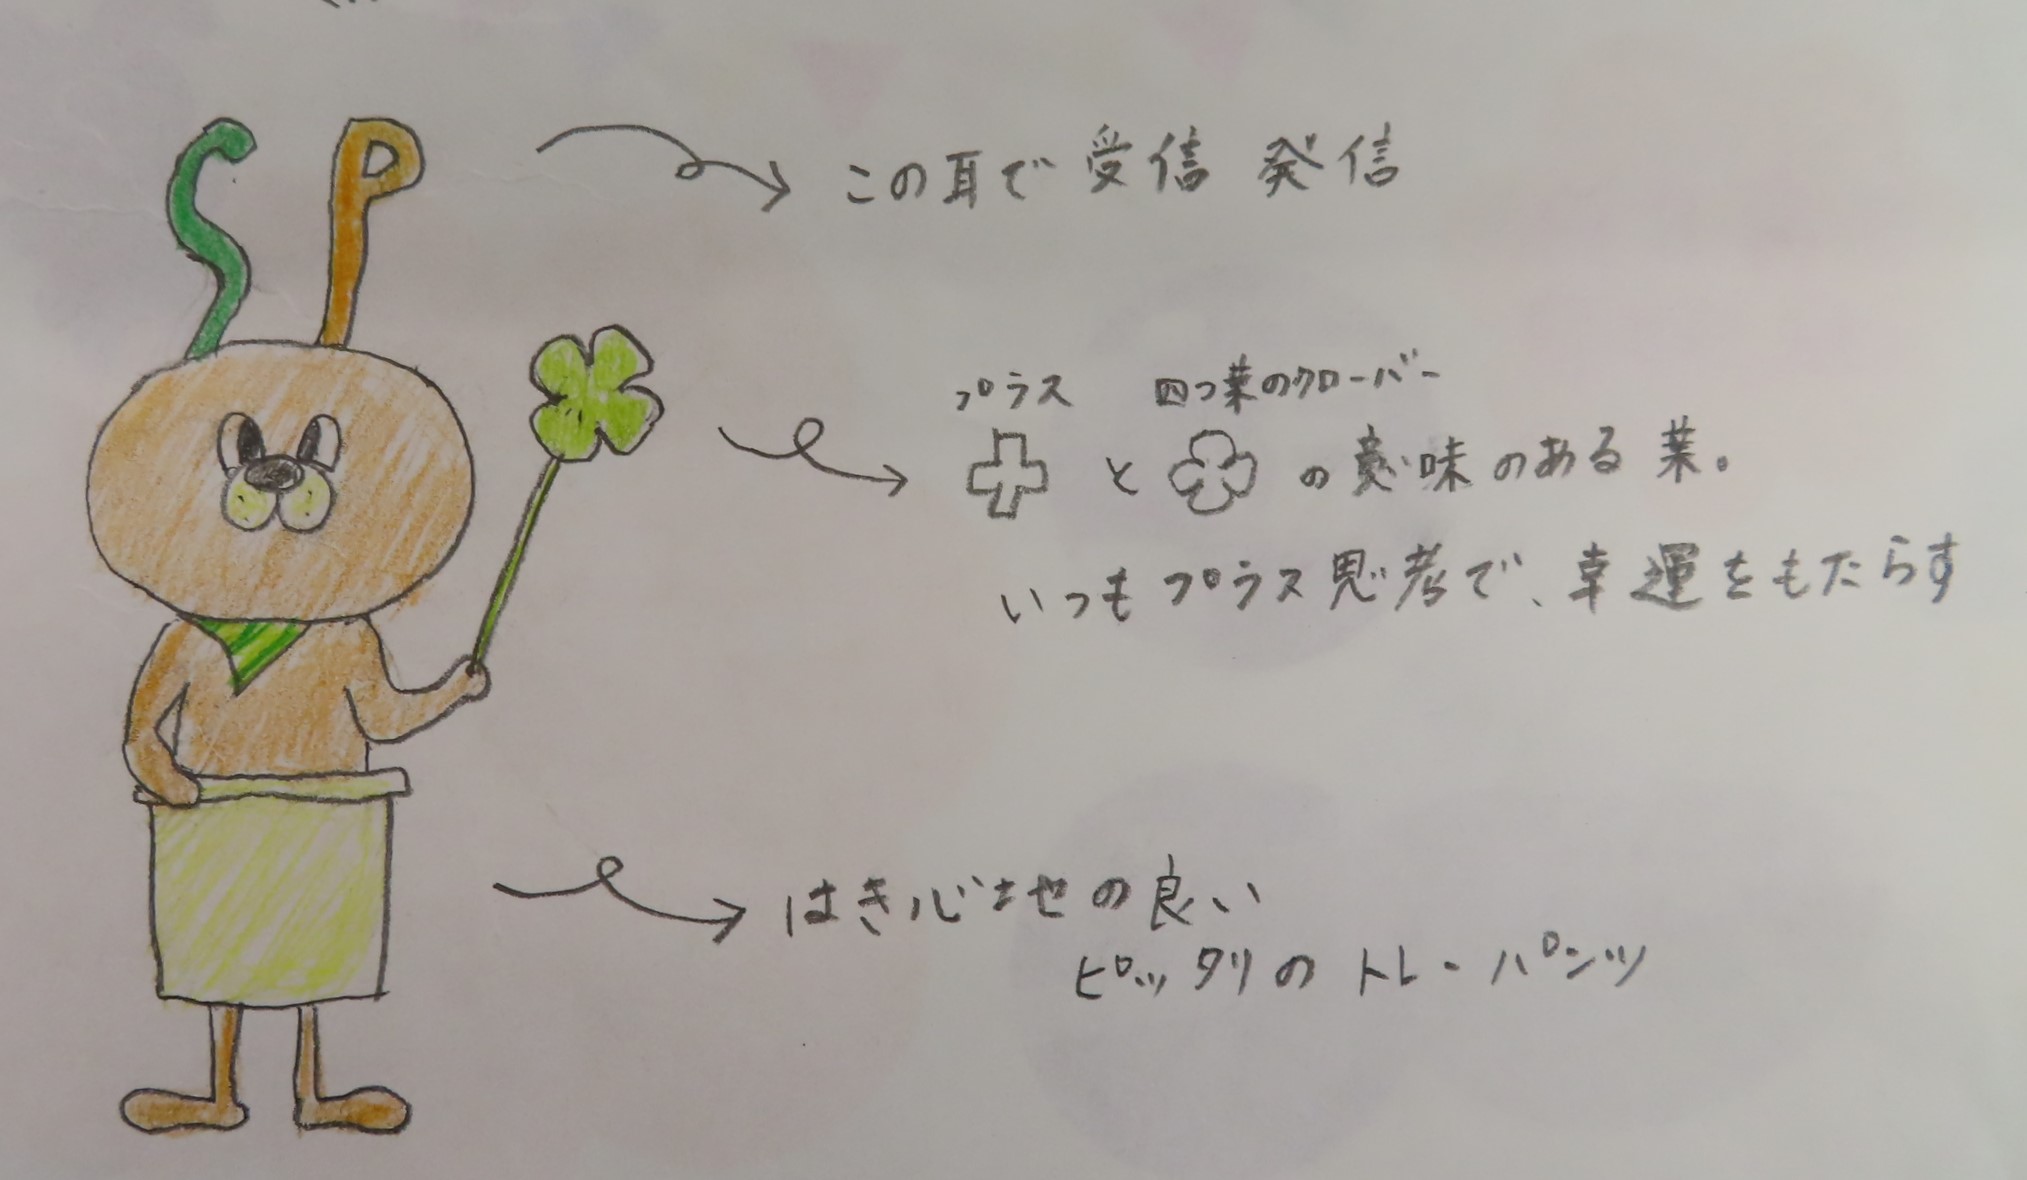 SP
この耳で 受信 発信
プラス 四つ葉のクローバー
と の意味のある葉。
いつもプラス思考で、幸運をもたらす
はき心地の良い
ピッタリの トレーパンツ